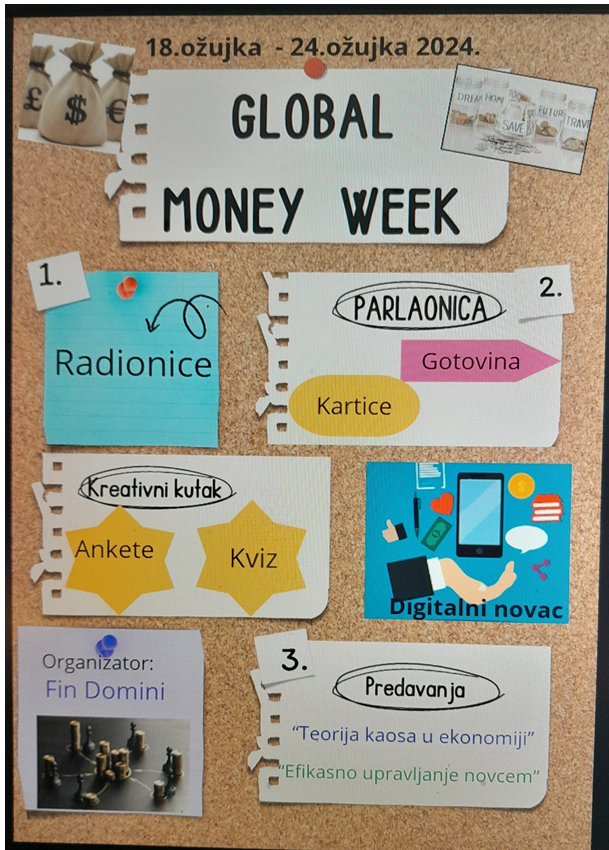 18.ožujka - 24.ožujka 2024.
£ $ €
DREAM HOME SAVE FUTURE TRAVEL
GLOBAL
MONEY WEEK
1.
Radionice
2.
PARLAONICA
Gotovina
Kartice
Kreativni kutak
Ankete
Kviz
$
Digitalni novac
Organizator:
Fin Domini
3.
Predavanja
“Teorija kaosa u ekonomiji”
“Efikasno upravljanje novcem”